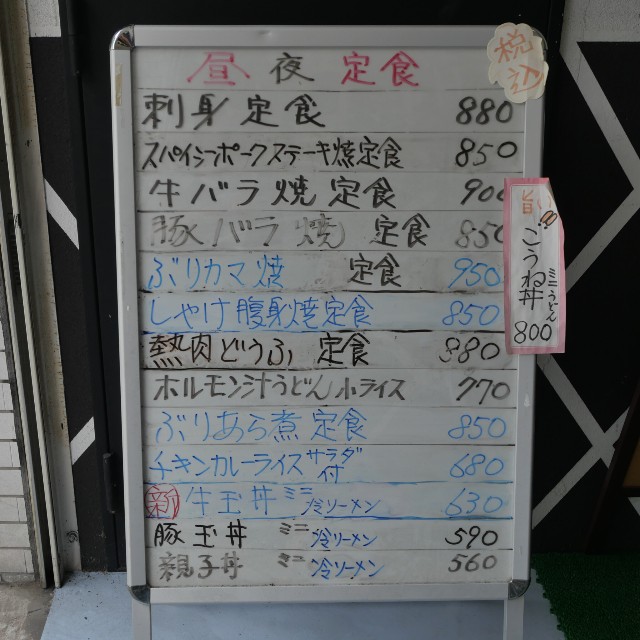 昼 夜 定食
税込
刺身定食 880
スパイシーポークステーキ焼定食 850
牛バラ焼定食 900
豚バラ焼 定食 850
ぶりカマ焼 定食 950
しゃけ腹身焼定食 850
熱肉どうふ 定食 880
ホルモン汁うどん小ライス 770
ぶりあら煮定食 850
チキンカレーライスサラダ付 680
新 牛玉丼 ミニ 冷ソーメン 630
豚玉丼 ミニ 冷ソーメン 590
親子丼 ミニ 冷ソーメン 560
こうね丼 ミニうどん
800